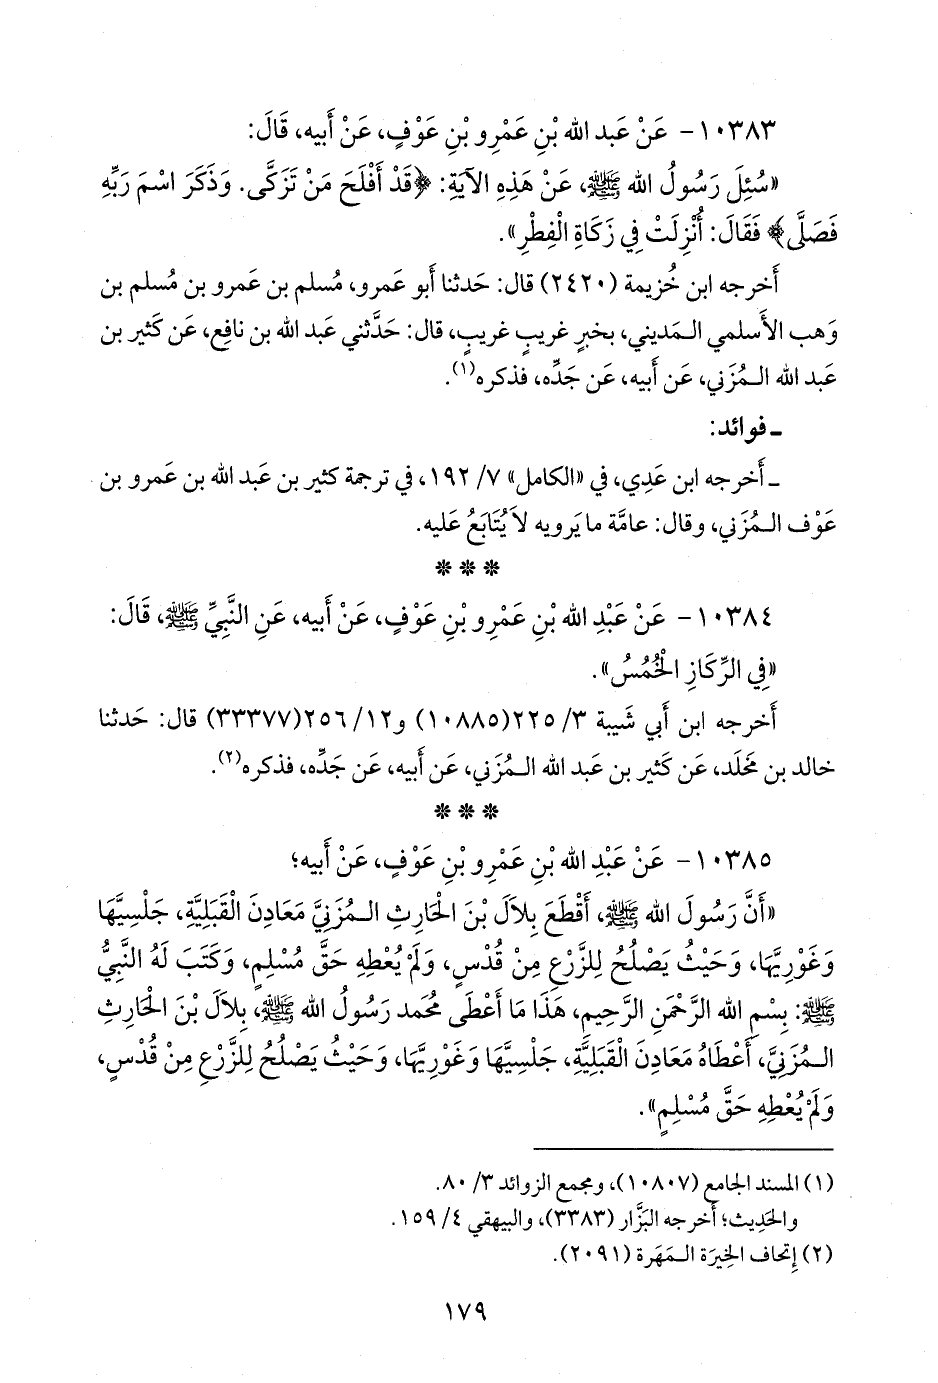 ١٠٣٨٣ - عَنْ عَبد الله بْنِ عَمْرِو بْنِ عَوْفٍ، عَنْ أَبيه، قَالَ:
«سُئِلَ رَسُولُ الله ﷺ، عَنْ هَذِهِ الآيَةِ: ﴿قَدْ أَفْلَحَ مَنْ تَزَكَّى. وَذَكَرَ اسْمَ رَبِّهِ
فَصَلَّى﴾ فَقَالَ: أُنْزِلَتْ فِي زَكَاةِ الْفِطْرِ».
أَخرجه ابن خُزيمة (٢٤٢٠) قال: حَدثنا أَبو عَمرو، مُسلم بن عَمرو بن مُسلم بن
وَهب الأَسلمي المَديني، بخبرٍ غريبٍ غريبٍ، قال: حَدَّثني عَبد الله بن نافِع، عَن كَثير بن
عَبد الله المُزَني، عَن أَبيه، عَن جَدِّه، فذكره(١).
ـ فوائد:
ـ أَخرجه ابن عَدِي، في «الكامل» ٧/ ١٩٢، في ترجمة كثير بن عَبد الله بن عَمرو بن
عَوْف المُزَني، وقال: عامَّة ما يَرويه لاَ يُتَابَعُ عَليه.
* * *
١٠٣٨٤ - عَنْ عَبْدِ الله بْنِ عَمْرِو بْنِ عَوْفٍ، عَنْ أَبيه، عَنِ النَّبِيِّ ﷺ، قَالَ:
«فِي الرِّكَازِ الْخُمُسُ».
أَخرجه ابن أَبي شَيبة ٣/ ٢٢٥(١٠٨٨٥) و١٢/ ٢٥٦(٣٣٣٧٧) قال: حَدثنا
خالد بن مَخلَد، عَن كَثير بن عَبد الله المُزَني، عَن أَبيه، عَن جَدِّه، فذكره(٢).
* * *
١٠٣٨٥ - عَنْ عَبْدِ الله بْنِ عَمْرِو بْنِ عَوْفٍ، عَنْ أَبيه؛
«أَنَّ رَسُولَ الله ﷺ، أَقْطَعَ بِلاَلَ بْنَ الْحَارِثِ المُزَنِيَّ مَعَادِنَ الْقَبَلِيَّةِ، جَلْسِيَّهَا
وَغَوْرِيَّهَا، وَحَيْثُ يَصْلُحُ لِلزَّرْعِ مِنْ قُدْسٍ، وَلَمْ يُعْطِهِ حَقَّ مُسْلِمٍ، وَكَتَبَ لَهُ النَّبِيُّ
ﷺ: بِسْمِ الله الرَّحْمَنِ الرَّحِيمِ، هَذَا مَا أَعْطَى مُحَمد رَسُولُ الله ﷺ، بِلاَلَ بْنَ الْحَارِثِ
المُزَنِيَّ، أَعْطَاهُ مَعَادِنَ الْقَبَلِيَّةِ، جَلْسِيَّهَا وَغَوْرِيَّهَا، وَحَيْثُ يَصْلُحُ لِلزَّرْعِ مِنْ قُدْسٍ،
وَلَمْ يُعْطِهِ حَقَّ مُسْلِمٍ».
(١) المسند الجامع (١٠٨٠٧)، ومجمع الزوائد ٣/ ٨٠.
والحَدِيث؛ أَخرجه البَزَّار (٣٣٨٣)، والبيهقي ٤/ ١٥٩.
(٢) إِتحاف الخِيرَة المَهَرة (٢٠٩١).
١٧٩